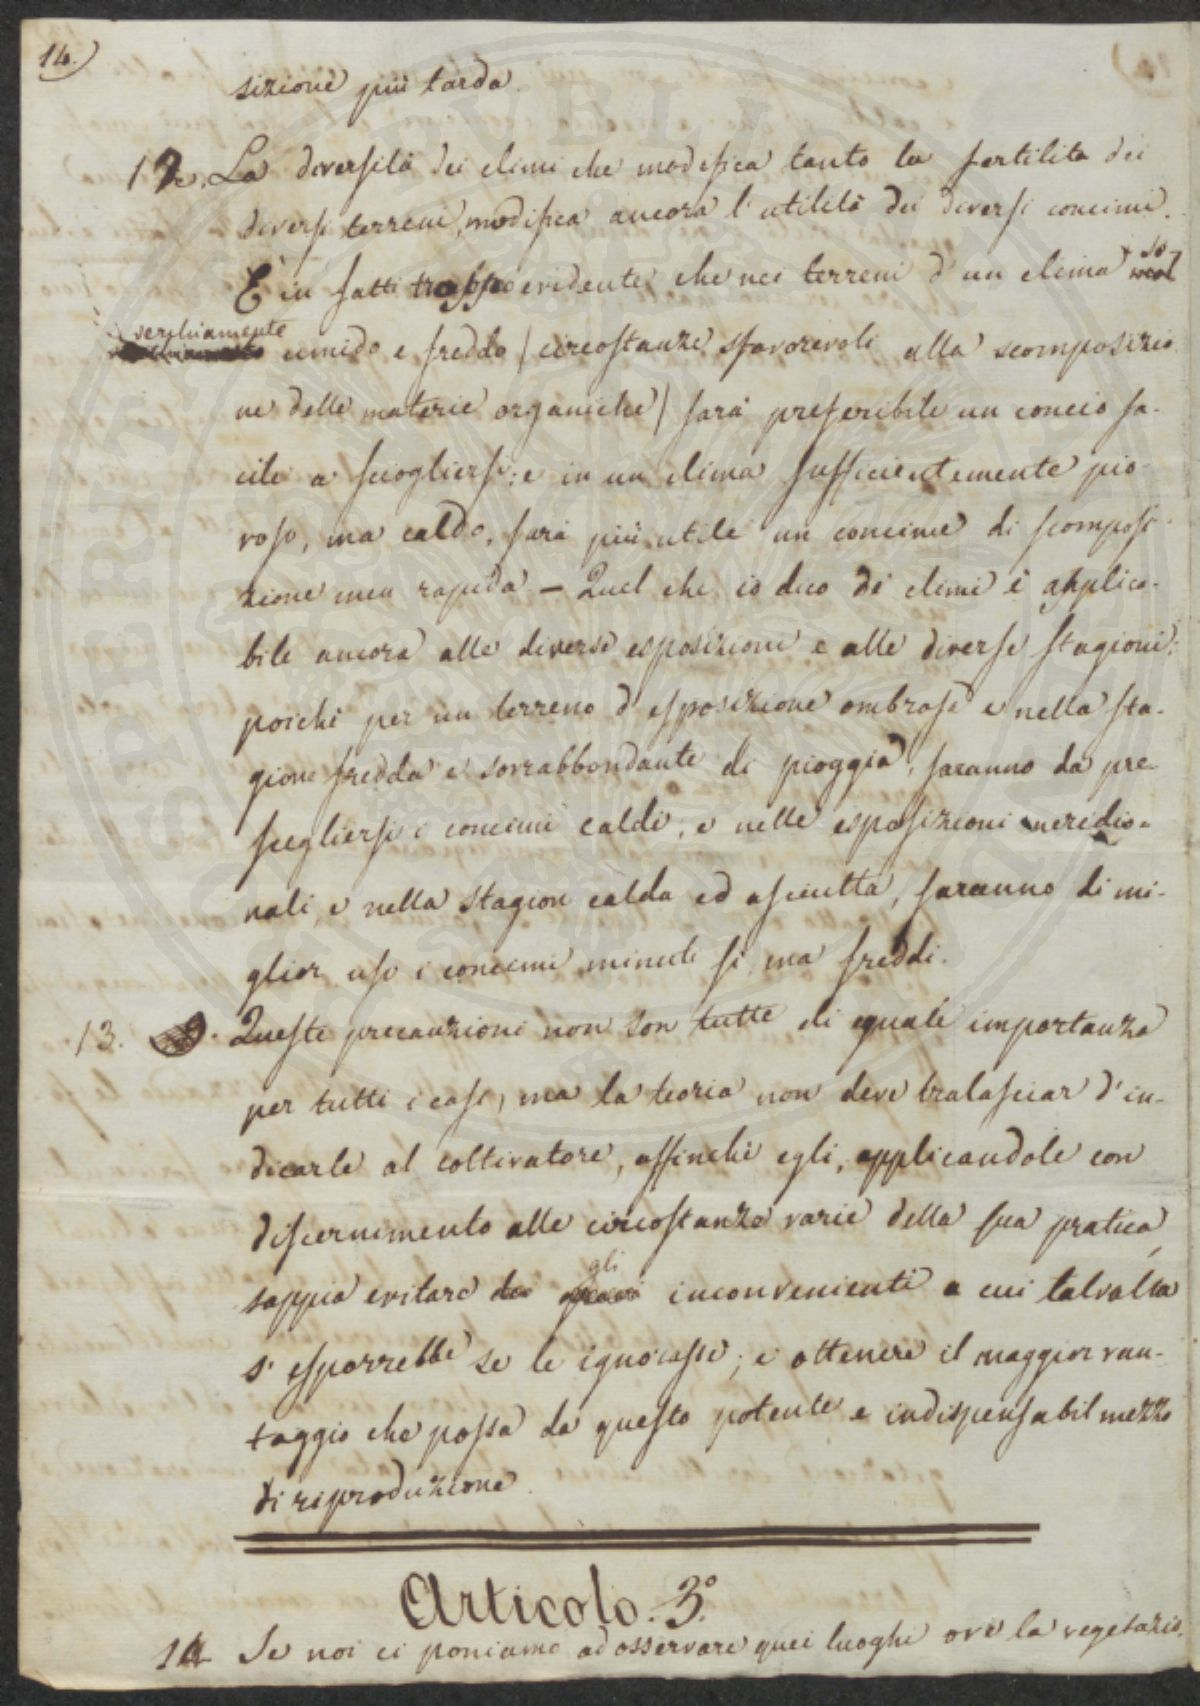 14.)
sizione più tarda.
12. La diversità dei climi che modifica tanto la fertilità dei
diversi terreni, modifica ancora l'utilità dei diversi concimi.
È in fatti evidente che nei terreni d'un clima so
verchiamente umido e freddo (circostanze sfavorevoli alla scomposizio
ne delle materie organiche) sarà preferibile un concio fa-
cile a sciogliersi: e in un clima sufficientemente pio-
voso, ma caldo, sarà più utile un concime di scomposi-
zione men rapida – Quel che io dico di climi è applica-
bile ancora alle diverse esposizioni e alle diverse stagioni:
poichè per un terreno d'esposizione ombrosa e nella sta-
gione fredda e sovrabbondante di pioggia, saranno da pre-
scegliersi i concimi caldi; e nelle esposizioni meridio-
nali, e nella stagion calda ed asciutta, saranno di mi-
glior uso i concimi minuti sì, ma freddi.
13. Queste precauzioni non son tutte di eguale importanza
per tutti i casi, ma la teoria non deve tralasciar d'in-
dicarle al coltivatore, affinchè egli, applicandole con
discernimento alle circostanze varie della sua pratica,
sappia evitare gli inconvenienti a cui talvolta
s'esporrebbe se le ignorasse; e ottenere il maggior van-
taggio che possa da questo potente e indispensabil mezzo
di riproduzione.
Articolo. 3.°
14 Se noi ci poniamo ad osservare quei luoghi ove la vegetazio.